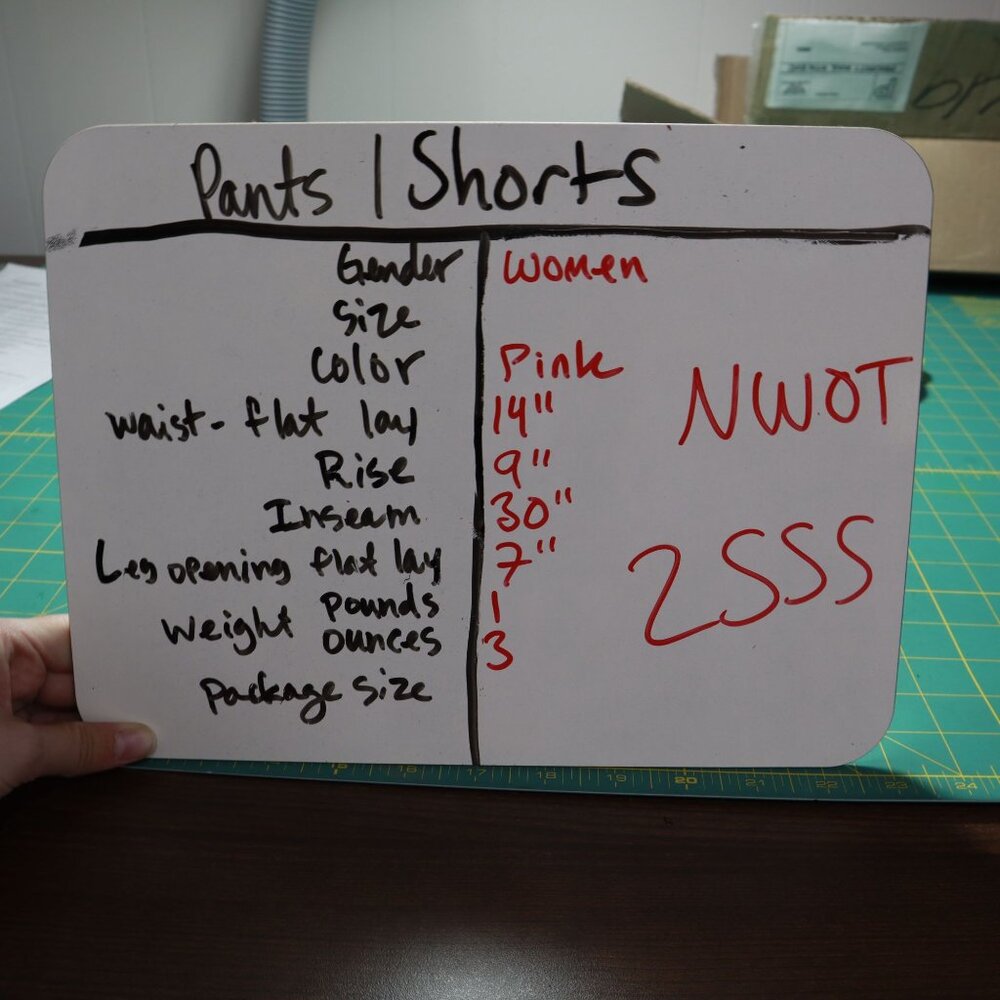 Pants | Shorts
Gender Women
Size
Color Pink
waist- flat lay 14"
Rise 9"
Inseam 30"
Leg opening flat lay 7"
Weight pounds 1
ounces 3
package size
NWOT
2SSS
15
17
18
19
20
21
22
23
24